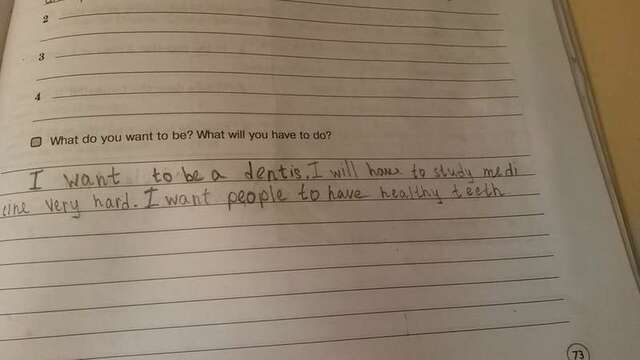 2
3
4
What do you want to be? What will you have to do?
I want to be a dentis. I will have to study medi
cine very hard. I want people to have healthy teeth
73